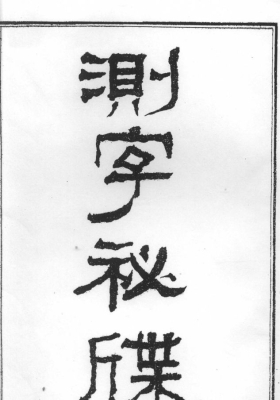 測字祕牒